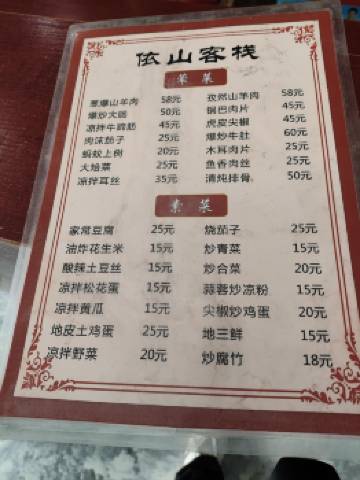 依山客栈
荤 菜
葱爆山羊肉 58元 孜然山羊肉 58元
爆炒大肠 50元 锅巴肉片 45元
凉拌牛蹄筋 45元 虎皮尖椒 45元
肉沫茄子 25元 爆炒牛肚 60元
蚂蚁上树 20元 木耳肉片 25元
大烩菜 25元 鱼香肉丝 25元
凉拌耳丝 35元 清炖排骨 50元
素 菜
家常豆腐 25元 烧茄子 25元
油炸花生米 15元 炒青菜 15元
酸辣土豆丝 15元 炒合菜 20元
凉拌松花蛋 15元 蒜蓉炒凉粉 15元
凉拌黄瓜 15元 尖椒炒鸡蛋 20元
地皮土鸡蛋 25元 地三鲜 15元
凉拌野菜 20元 炒腐竹 18元